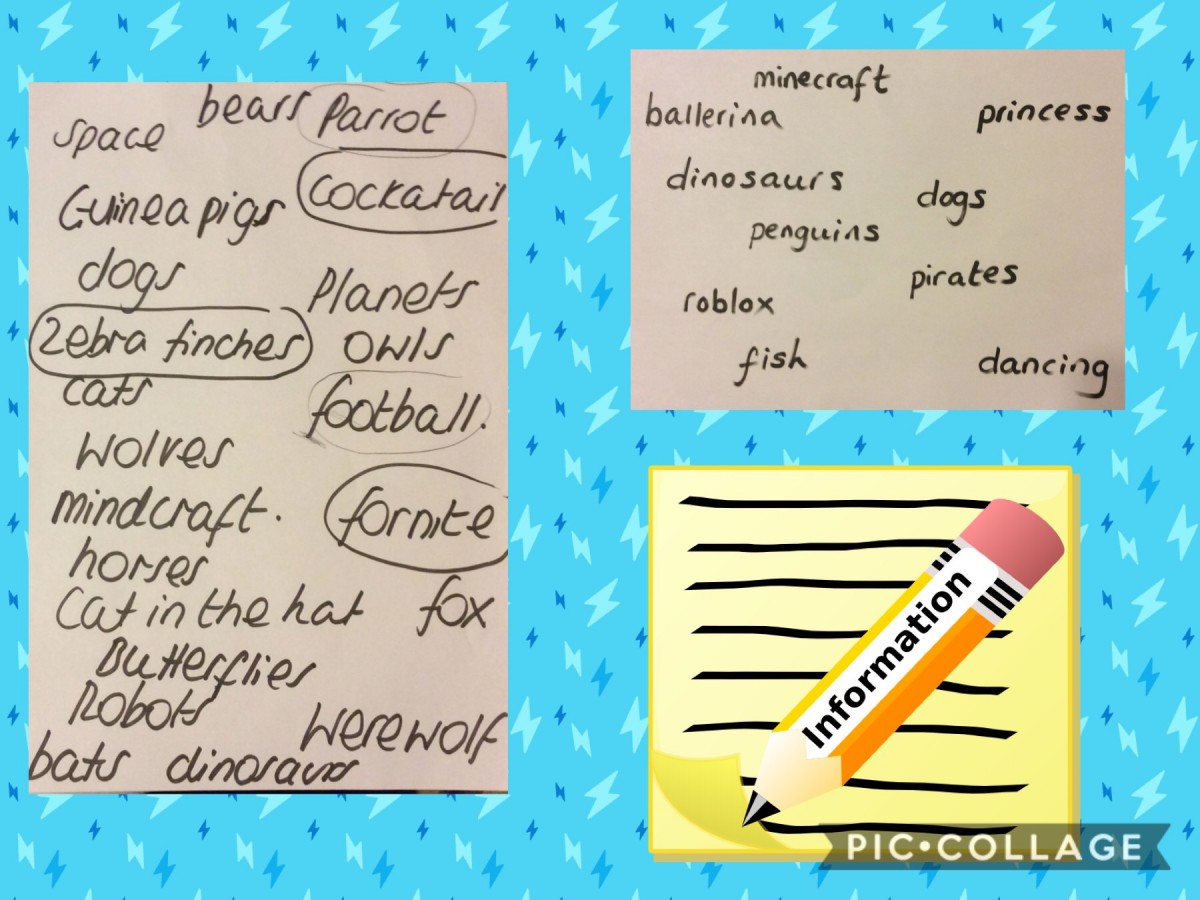 bears Parrot
space
Cockatail
Guinea pigs
dogs
Planets
Zebra finches
owls
cats
football.
wolves
mindcraft.
fornite
horses
Cat in the hat
fox
Butterflies
Robots
Werewolf
bats dinosaurs
minecraft
ballerina
princess
dinosaurs
dogs
penguins
pirates
roblox
fish
dancing
Information
PIC•COLLAGE